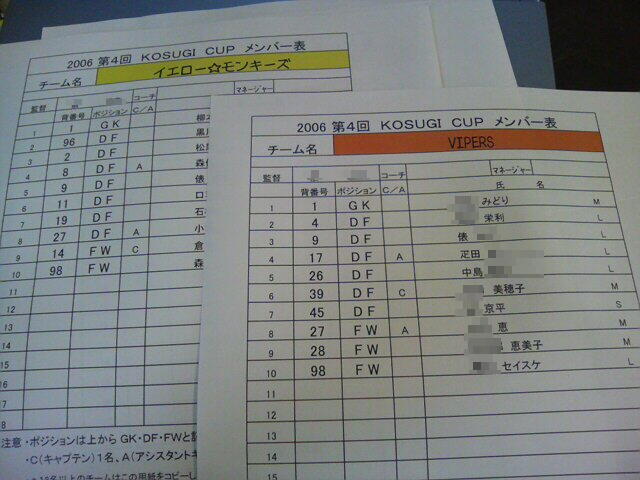 2006 第4回 KOSUGI CUP メンバー表
チーム名 イエロー☆モンキーズ
監督 コーチ マネージャー
背番号 ポジション C/A
1 1 GK 柳
2 96 DF 黒
3 2 DF 松
4 8 DF A 森
5 9 DF 俵
6 11 DF 口
7 19 DF 石
8 27 DF A 小
9 14 FW C 倉
10 98 FW 森
11
12
13
14
15
16
17
8
注意・ポジションは上からGK・DF・FWと
・C(キャプテン)1名、A(アシスタントキ
2006 第4回 KOSUGI CUP メンバー表
チーム名 VIPERS
監督 コーチ マネージャー
背番号 ポジション C/A 氏 名
1 1 GK みどり M
2 4 DF 栄利 L
3 9 DF 俵 L
4 17 DF A 疋田 L
5 26 DF 中島 L
6 39 DF C 美穂子 M
7 45 DF 京平 S
8 27 FW A 恵 M
9 28 FW 恵美子 M
10 98 FW セイスケ L
11
12
13
14
15